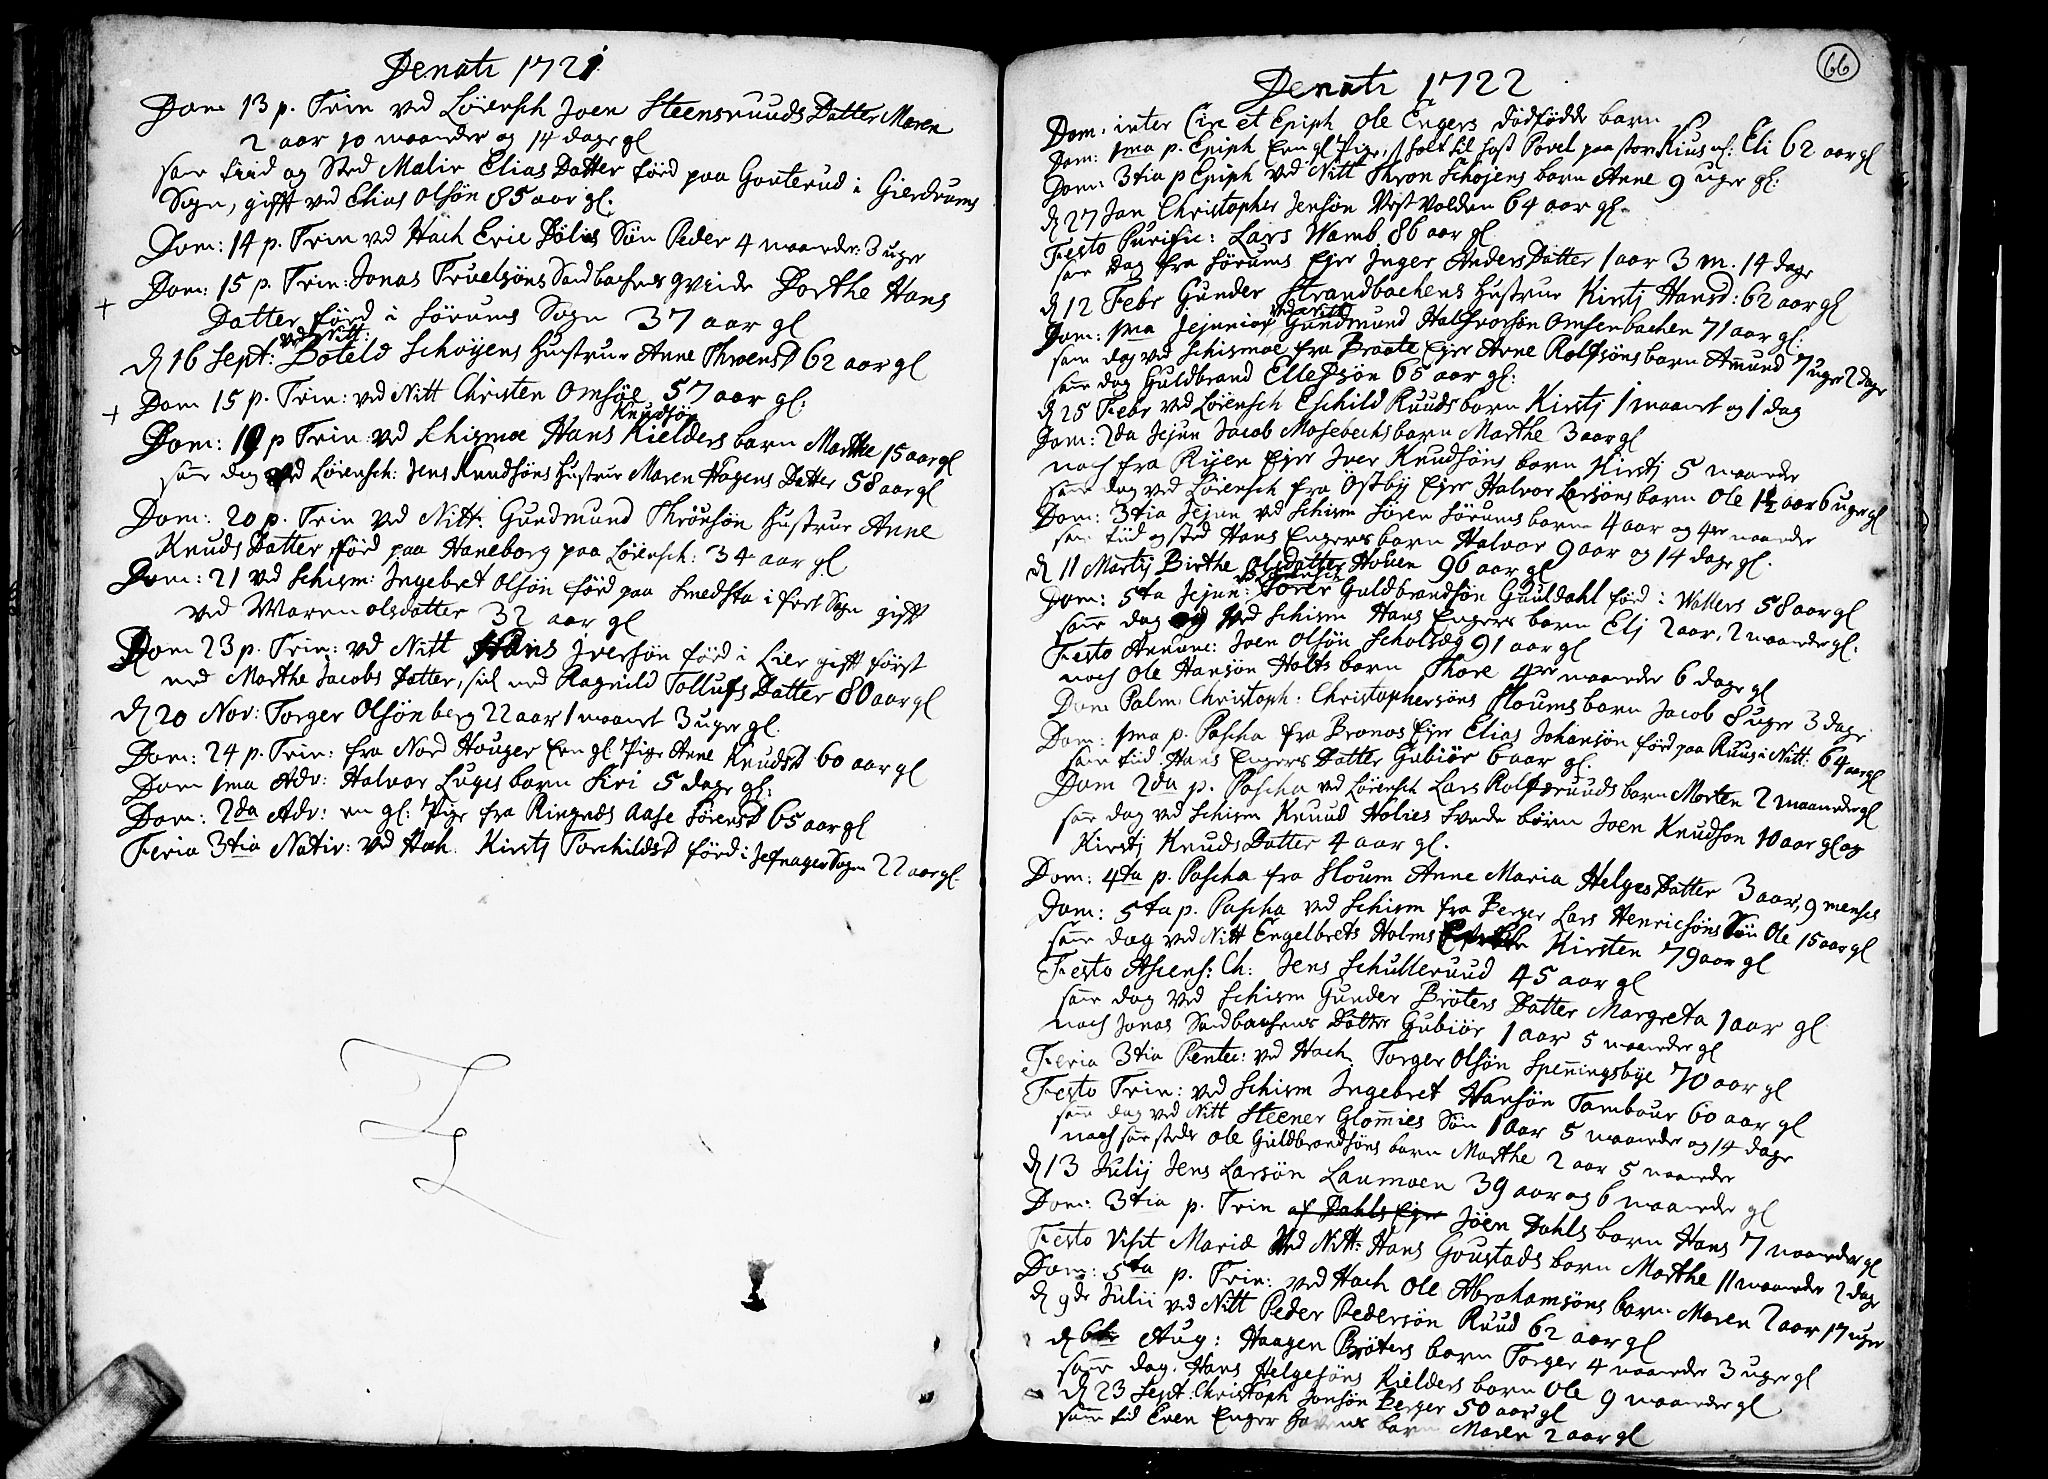 Denati 1721
Dom 13 p. Trin ved Lørensch Joen Steensruuds Datter Maren
2 aar 10 maaneder og 14 dage gl
same tiid og Sted Malin Elias Datter förd paa Gouterud i Gierdrums
Sogn, gifft ved Elias Olsøn 85 aar gl.
Dom: 14 p. Trin ved Hach Eric Dølis Søn Peder 4 maaneder 3 uger
Dom: 15 p. Trin: Jonas Truelsøns Sandbachens qvinde Dorthe Hans
Datter förd i Sørums Sogn 37 aar gl
ved Nitt:
d 16 Sept: Boteld Schøyens Hustrue Anne Throensd 62 aar gl
Dom 15 p. Trin: ved Nitt Christen Omsøe 57 aar gl.
Knudsøn
Dom: 19 p Trin ved Schismoe Hans Kielders barn Marthe 15 aar gl
same dag ved Lørensch: Jens Knudsøns Hustrue Maren Hagens Datter 58 aar gl
Dom: 20 p. Trin ved Nitt: Gundmund Thrönsøn Hustrue Anne
Knuds Datter, förd paa Haneborg paa Lørensch: 34 aar gl
Dom: 21 ved Schism: Ingebret Olsøn förd paa Smedsta i fert Sogn gifft
ved Maren olsdatter 32 aar gl
Dom 23 p. Trin: ved Nitt Hans Iversøn förd i Lier gifft først
med Marthe Jacobs Datter, sid med Ragnild Tollufs Datter 80 aar gl
d 20 Nov: Torger Olsøn berg 22 aar 1 maanet 3 uger gl.
Dom: 24 p. Trin: fra Nord Houger Een gl Pige Anne Knudsd 60 aar gl
Dom 1ma Adv: Halvor Luges barn Siri 5 dage gl:
Dom: 2da Adv: en gl: Pige fra Ringnds Aase Sörensd 65 aar gl
Feria 3tia Nativ: ved Hach Kirstj Torchildsd förd i Jefnager Sogn 22 aar gl.
66
Denati 1722
Dom: inter Circ et Epiph Ole Engers dødfødde barn
Dom: 1ma p. Epiph Een gl Pige, holt til hos Povel paa stor Kius nf: Eli 62 aar gl
Dom: 3tia p Epiph ved Nitt Thron Schøjens barn Anne 9 uger gl:
d 27 Jan Christopher Jensøn Vest Volden 64 aar gl.
Festo Purific: Lars Wamb 86 aar gl
same dag fra Sørums Ejer Inger Anders Datter 1 aar 3 m. 14 dage
d 12 Febr Gunder Strandbachens Hustrue Kirstj Hansd: 62 aar gl
ved Nitt
Dom: 1ma Jejunior Gundmund Halfvorsøn Omsenbachen 71 aar gl:
same dag ved Schismoe fra Braate Ejer Arne Rolfsøns barn Amund 7 uger 2 dage
same dag Guldbrand Ellefsøn 65 aar gl:
d 25 Febr ved Lørensch Eschild Ruuds barn Kirstj 1 maanet og 1 dag
Dom: 2da Jejun Jacob Mosebechs barn Marthe 3 aar gl
noch fra Ryen Ejer Iver Knudsøns barn Kirstj 5 maaneder
same dag ved Lørensch fra Östby Ejer Halvor Larsøns barn Ole 1½ aar 6 uger gl
Dom: 3tia Jejun ved Schism Sören Sørums barn 4 aar og 4re maaneder
same tiid og sted Hans Engers barn Halvor 9 aar og 14 dage gl.
d 11 Martij Birthe Olsdatter Hoven 96 aar gl
ved Lørensch
Dom: 5ta Jejun: Torer Guldbrandsøn Gauldahl förd i Wallers 58 aar gl
same dag og ved Schism Hans Engers barn Elj 2 aar, 2 maaneder gl.
Festo Annunc: Joen Olsøn Scholsæg 91 aar gl
noch Ole Hansøn Holts barn Thore 4re maaneder 6 dage gl
Dom Palm: Christoph: Christophersøns Floums barn Jacob 8 uger 3 dage
Dom: 1ma p. Pascha fra Bronos Ejer Elias Johansøn förd paa Ruus i Nitt: 64 aar gl
same tiid Hans Engers Datter Gubiör 6 aar gl:
Dom 2da p. Pascha ved Lörensch Lars Rolfsruuds barn Morten 2 maaneder gl
same dag ved Schism Knuud Holies Svede börn Joen Knudsøn 10 aar gl og
Kirstj Knuds Datter 4 aar gl.
Dom: 4ta p. Pascha fra Floum Anne Maria Helges Datter 3 aar, 9 menses
Dom: 5ta p. Pascha ved Schism fra Berger Lars Henricsøns Søn Ole 15 aar gl
same dag ved Nitt Engelbrets Holms Kirsten 79 aar gl
Festo Ascens: Ch: Jens Schulleruud 45 aar gl
same dag ved Schism Gunder Bröters Datter Margreta 1 aar gl
noch Jonas Sandbachens Datter Gubiör 1 aar 5 maaneder gl
Feria 3tia Pentec: ved Hach Torger Olsøn Spenningsbye 70 aar gl
Festo Trin: ved Schism Ingebret Hansøn Tambour 60 aar gl
same dag ved Nitt Steener Glommies Søn 1 aar 5 maaneder og 14 dage
noch same stede Ole Guldbrandsøns barn Marthe 2 aar 5 maaneder
d 13 Julij Jens Larsøn Laumoen 39 aar og 6 maaneder gl
Dom: 3tia p. Trin af Dahls Ejer Jöen Dahls barn Hans 7 maaneder gl
Festo Visit Mariæ ved Nitt: Hans Goustads barn Marthe 11 maaneder 2 dage
Dom: 5ta p. Trin: ved Hach Ole Abrahamsøns barn Maren 2 aar 17 uger
d 9de Julii ved Nitt Peder Pedersøn Ruud 62 aar gl
d 6te Aug: Haagen Bröters barn Torger 4 maaneder 3 uger gl
same dag. Hans Helgesøns Kielders barn Ole 9 maaneder gl
d 23 Sept: Christoph Jonsøn Berger 50 aar gl
same tid Even Enger barn Maren 2 aar gl